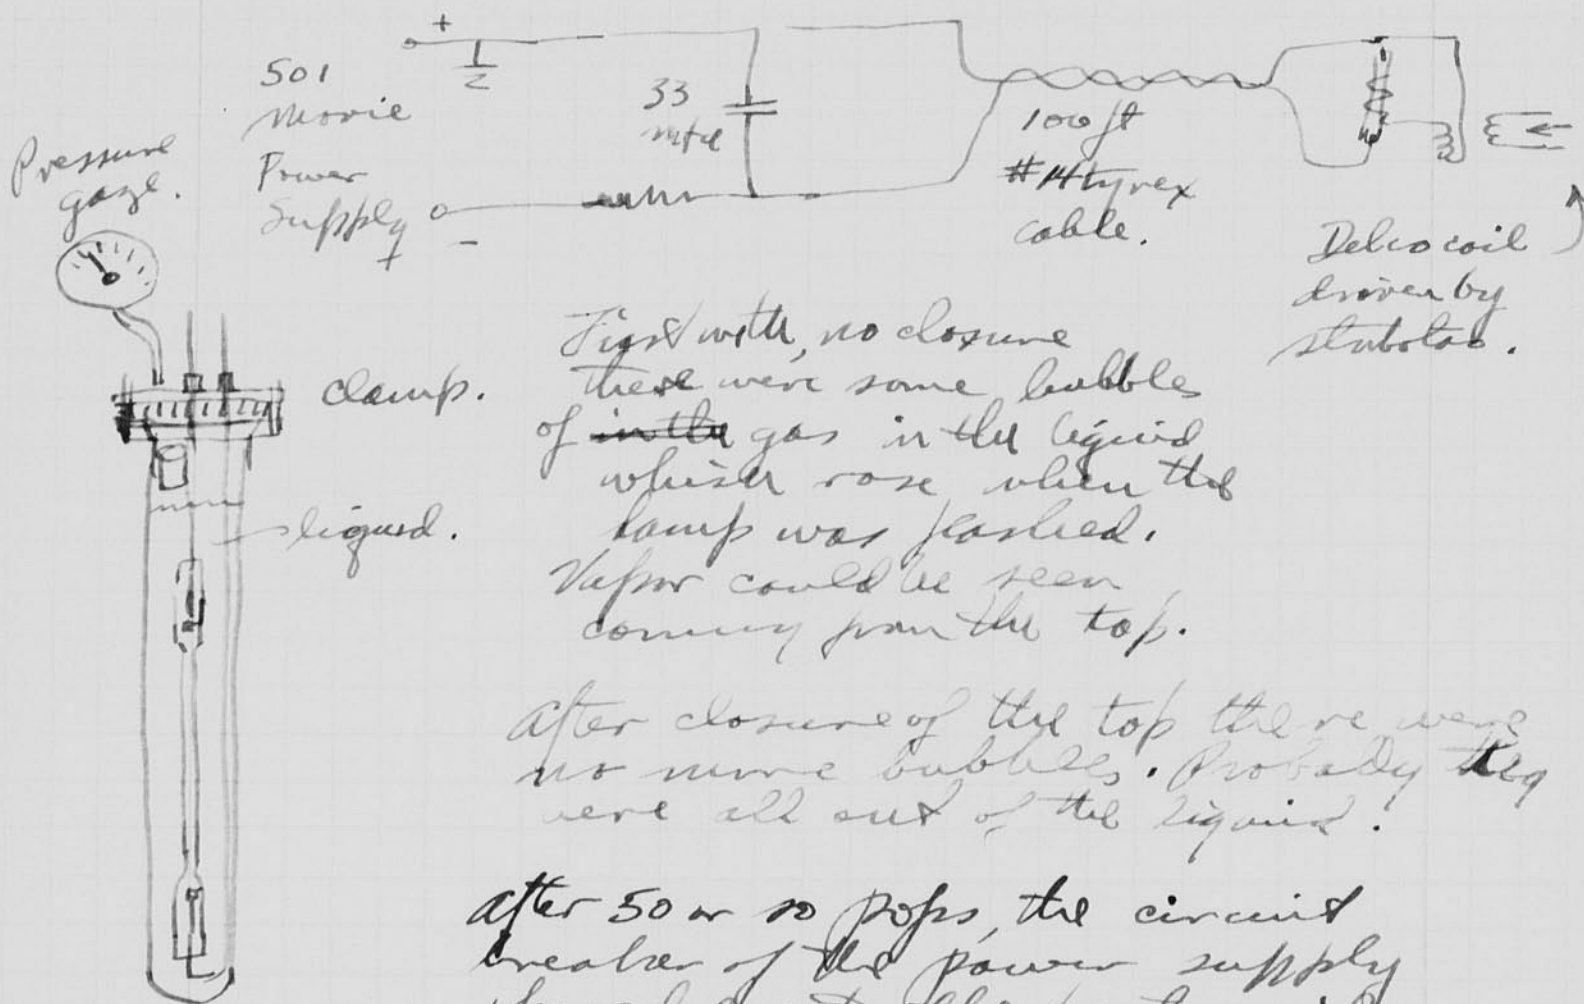 +
501
Movie
Power
Supply
-
33
mfd
100 ft
# 14 tyrex
cable.
Delco coil
driven by
strobotac.
Pressure
gage.
clamp.
liquid.
First with, no closure
there were some bubbles
of in the gas in the liquid
which rose when the
lamp was flashed.
Vapor could be seen
coming from the top.
After closure of the top there were
no more bubbles. Probably they
were all out of the liquid.
After 50 or so pops, the circuit
breaker of the power supply